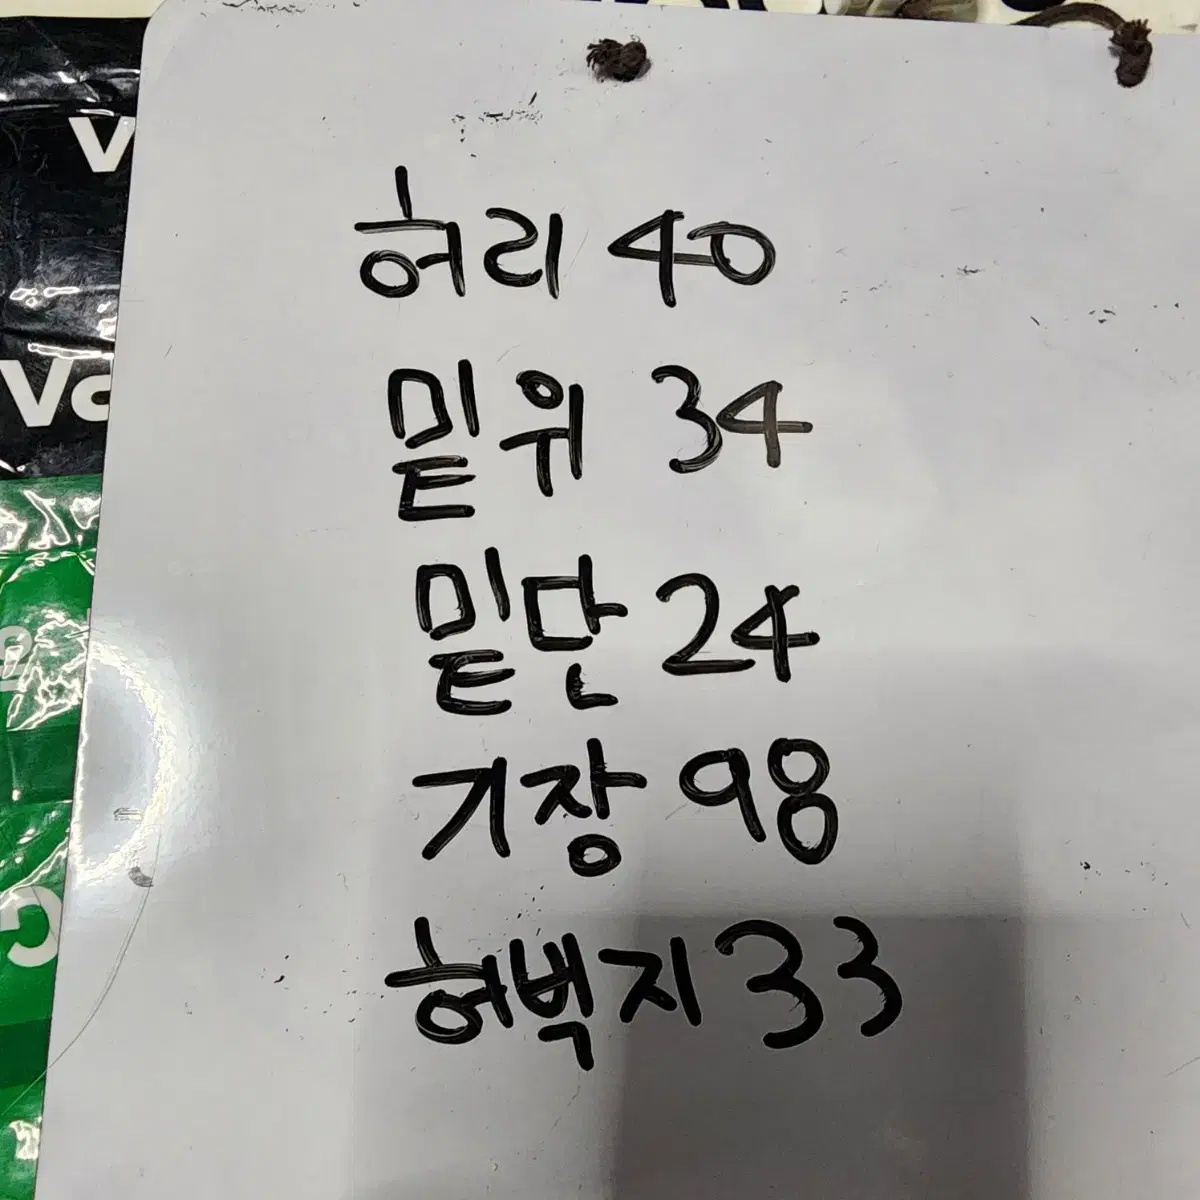 허리 40
밑위 34
밑단 24
기장 98
허벅지 33